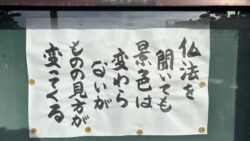 仏法を
聞いても
景色は
変わら
ないが
ものの見方が
変ってくる